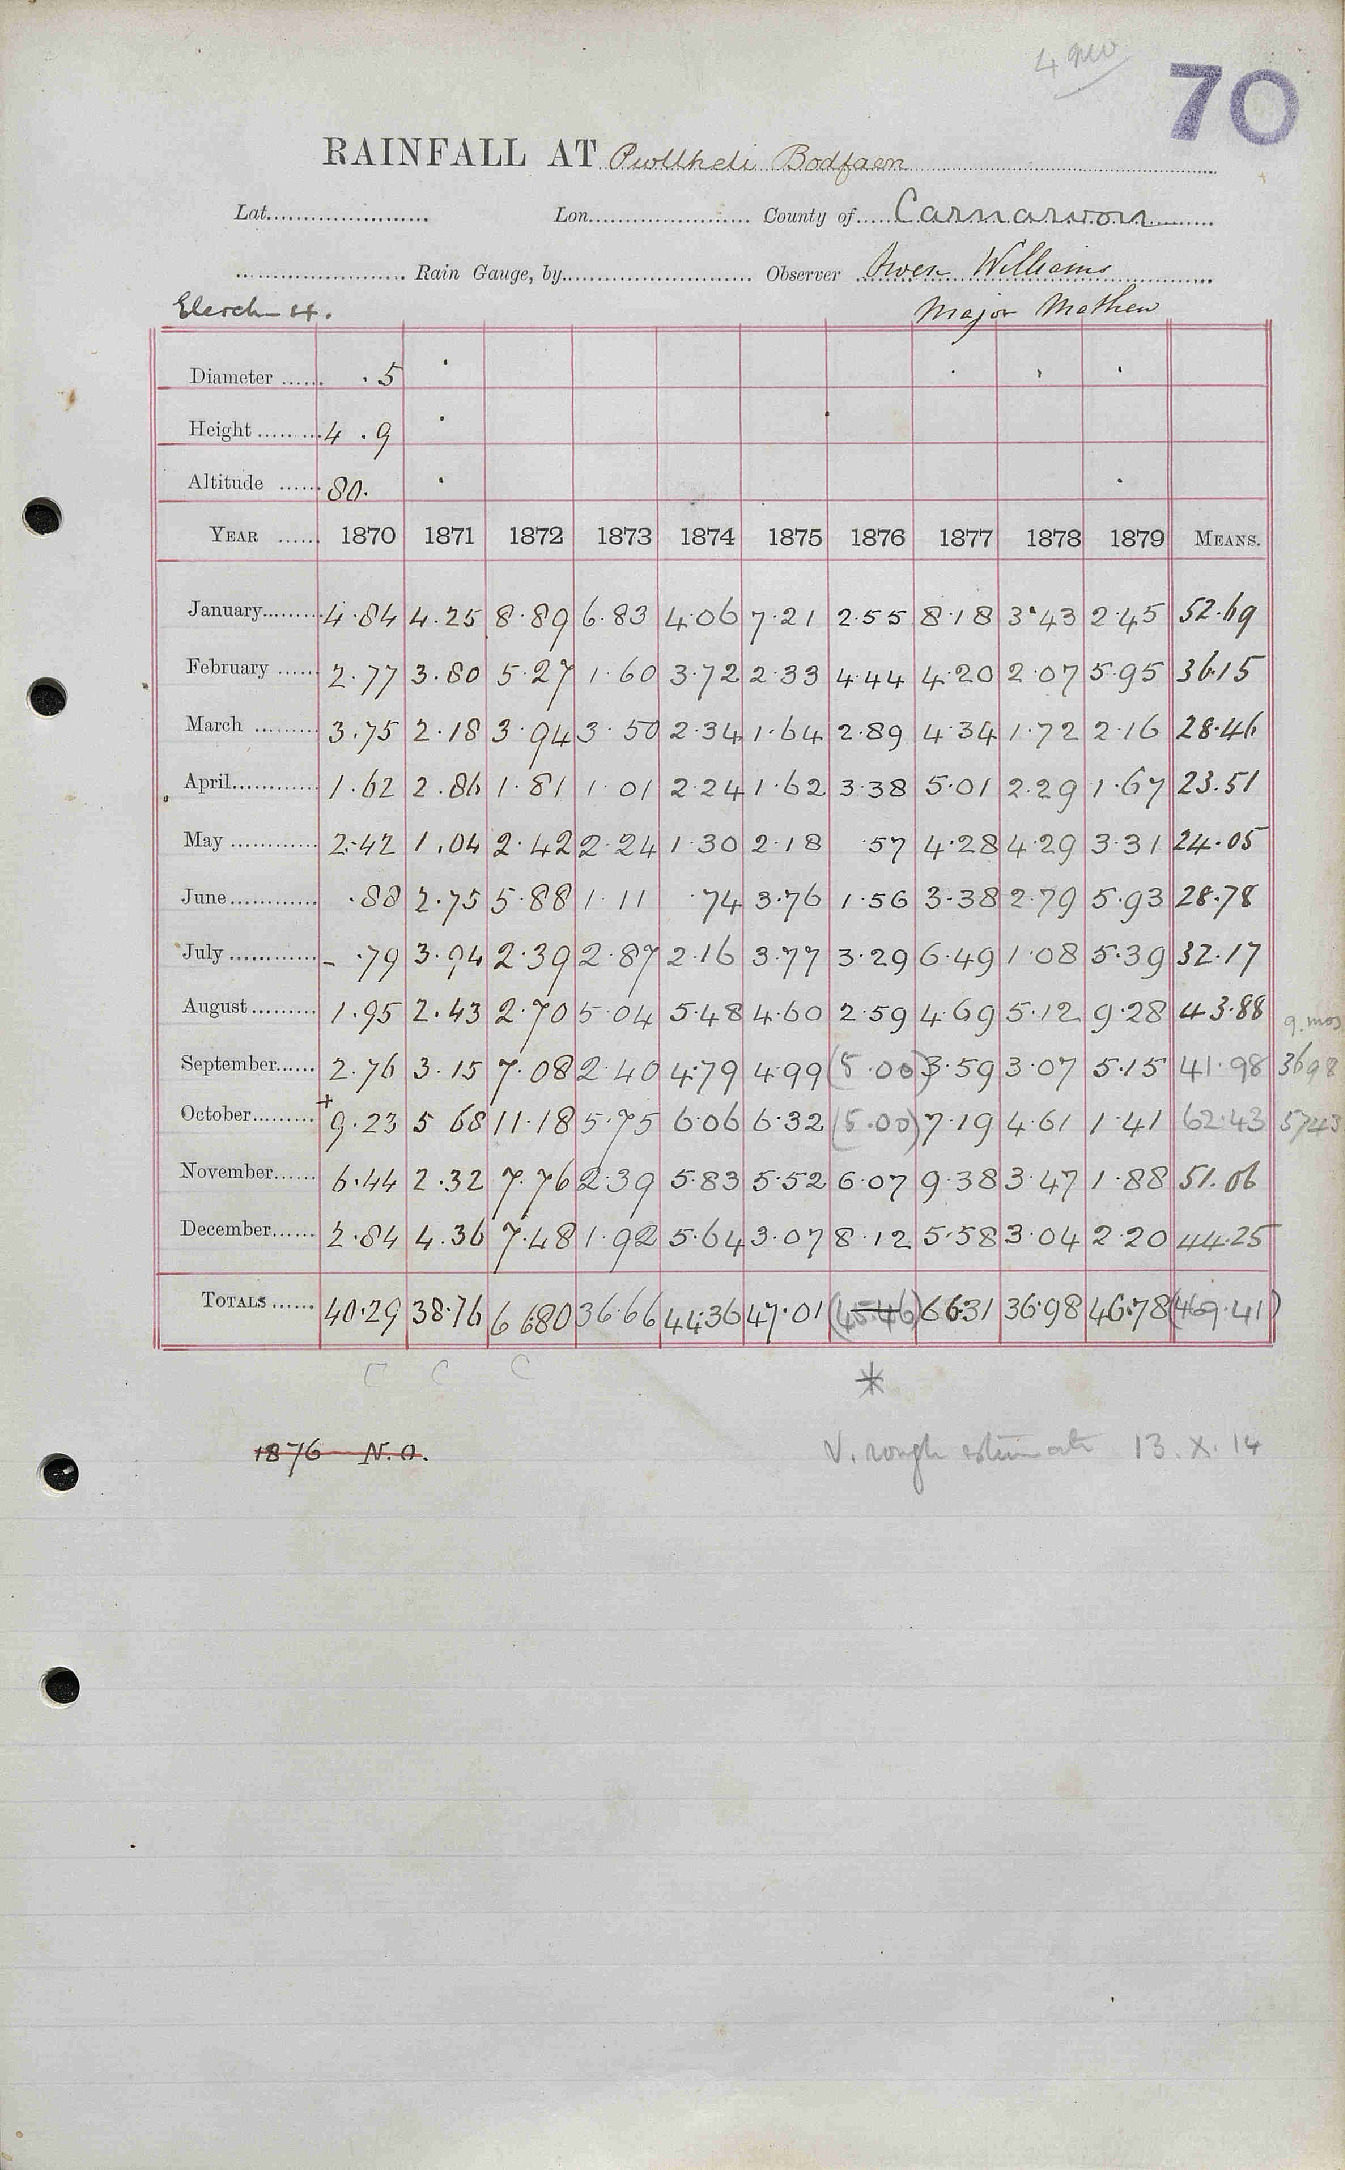 70
RAINFALL AT Pwllheli Bodfaen
Lat. Lon. County of Carnarvon
Rain Gauge, by Observer Owen Williams
Major Mathew
Diameter . 5
Height 4 . 9
Altitude 80.
YEAR 1870 1871 1872 1873 1874 1875 1876 1877 1878 1879 MEANS.
January 4.84 4.25 8.89 6.83 4.06 7.21 2.55 8.18 3.43 2.45 52.69
February 2.77 3.80 5.27 1.60 3.72 2.33 4.44 4.20 2.07 5.95 36.15
March 3.75 2.18 3.94 3.50 2.34 1.64 2.89 4.34 1.72 2.16 28.46
April 1.62 2.86 1.81 1.01 2.24 1.62 3.38 5.01 2.29 1.67 23.51
May 2.42 1.04 2.42 2.24 1.30 2.18 .57 4.28 4.29 3.31 24.05
June .88 2.75 5.88 1.11 .74 3.76 1.56 3.38 2.79 5.93 28.78
July - .79 3.94 2.39 2.87 2.16 3.77 3.29 6.49 1.08 5.39 32.17
August 1.95 2.43 2.70 5.04 5.48 4.60 2.59 4.69 5.12 9.28 43.88 9. mos
September 2.76 3.15 7.08 2.40 4.79 4.99 (5.00) 3.59 3.07 5.15 41.98 36 98
October + 9.23 5 68 11.18 5.75 6.06 6.32 (5.00) 7.19 4.61 1.41 62.43 57 43
November 6.44 2.32 7.76 2.39 5.83 5.52 6.07 9.38 3.47 1.88 51.06
December 2.84 4.36 7.48 1.92 5.64 3.07 8.12 5.58 3.04 2.20 44.25
TOTALS 40.29 38.76 66.80 36.66 44.36 47.01 (45.46) 66.31 36.98 46.78 (469.41)
C C C *
1876 N.O. V. rough estimate 13. X. 14